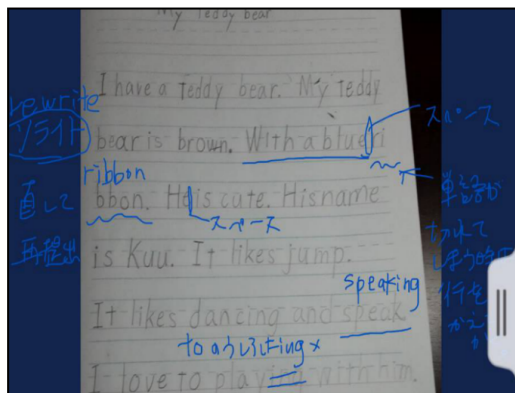 My Teddy bear
I have a Teddy bear. My Teddy
bear is brown. With a blue ri
bbon. He is cute. His name
is Kuu. It likes jump.
It likes dancing and speak
I love to playing with him.
rewrite
リライト
直して
再提出
ribbon
スペース
スペース
単語が
切れて
行を
speaking